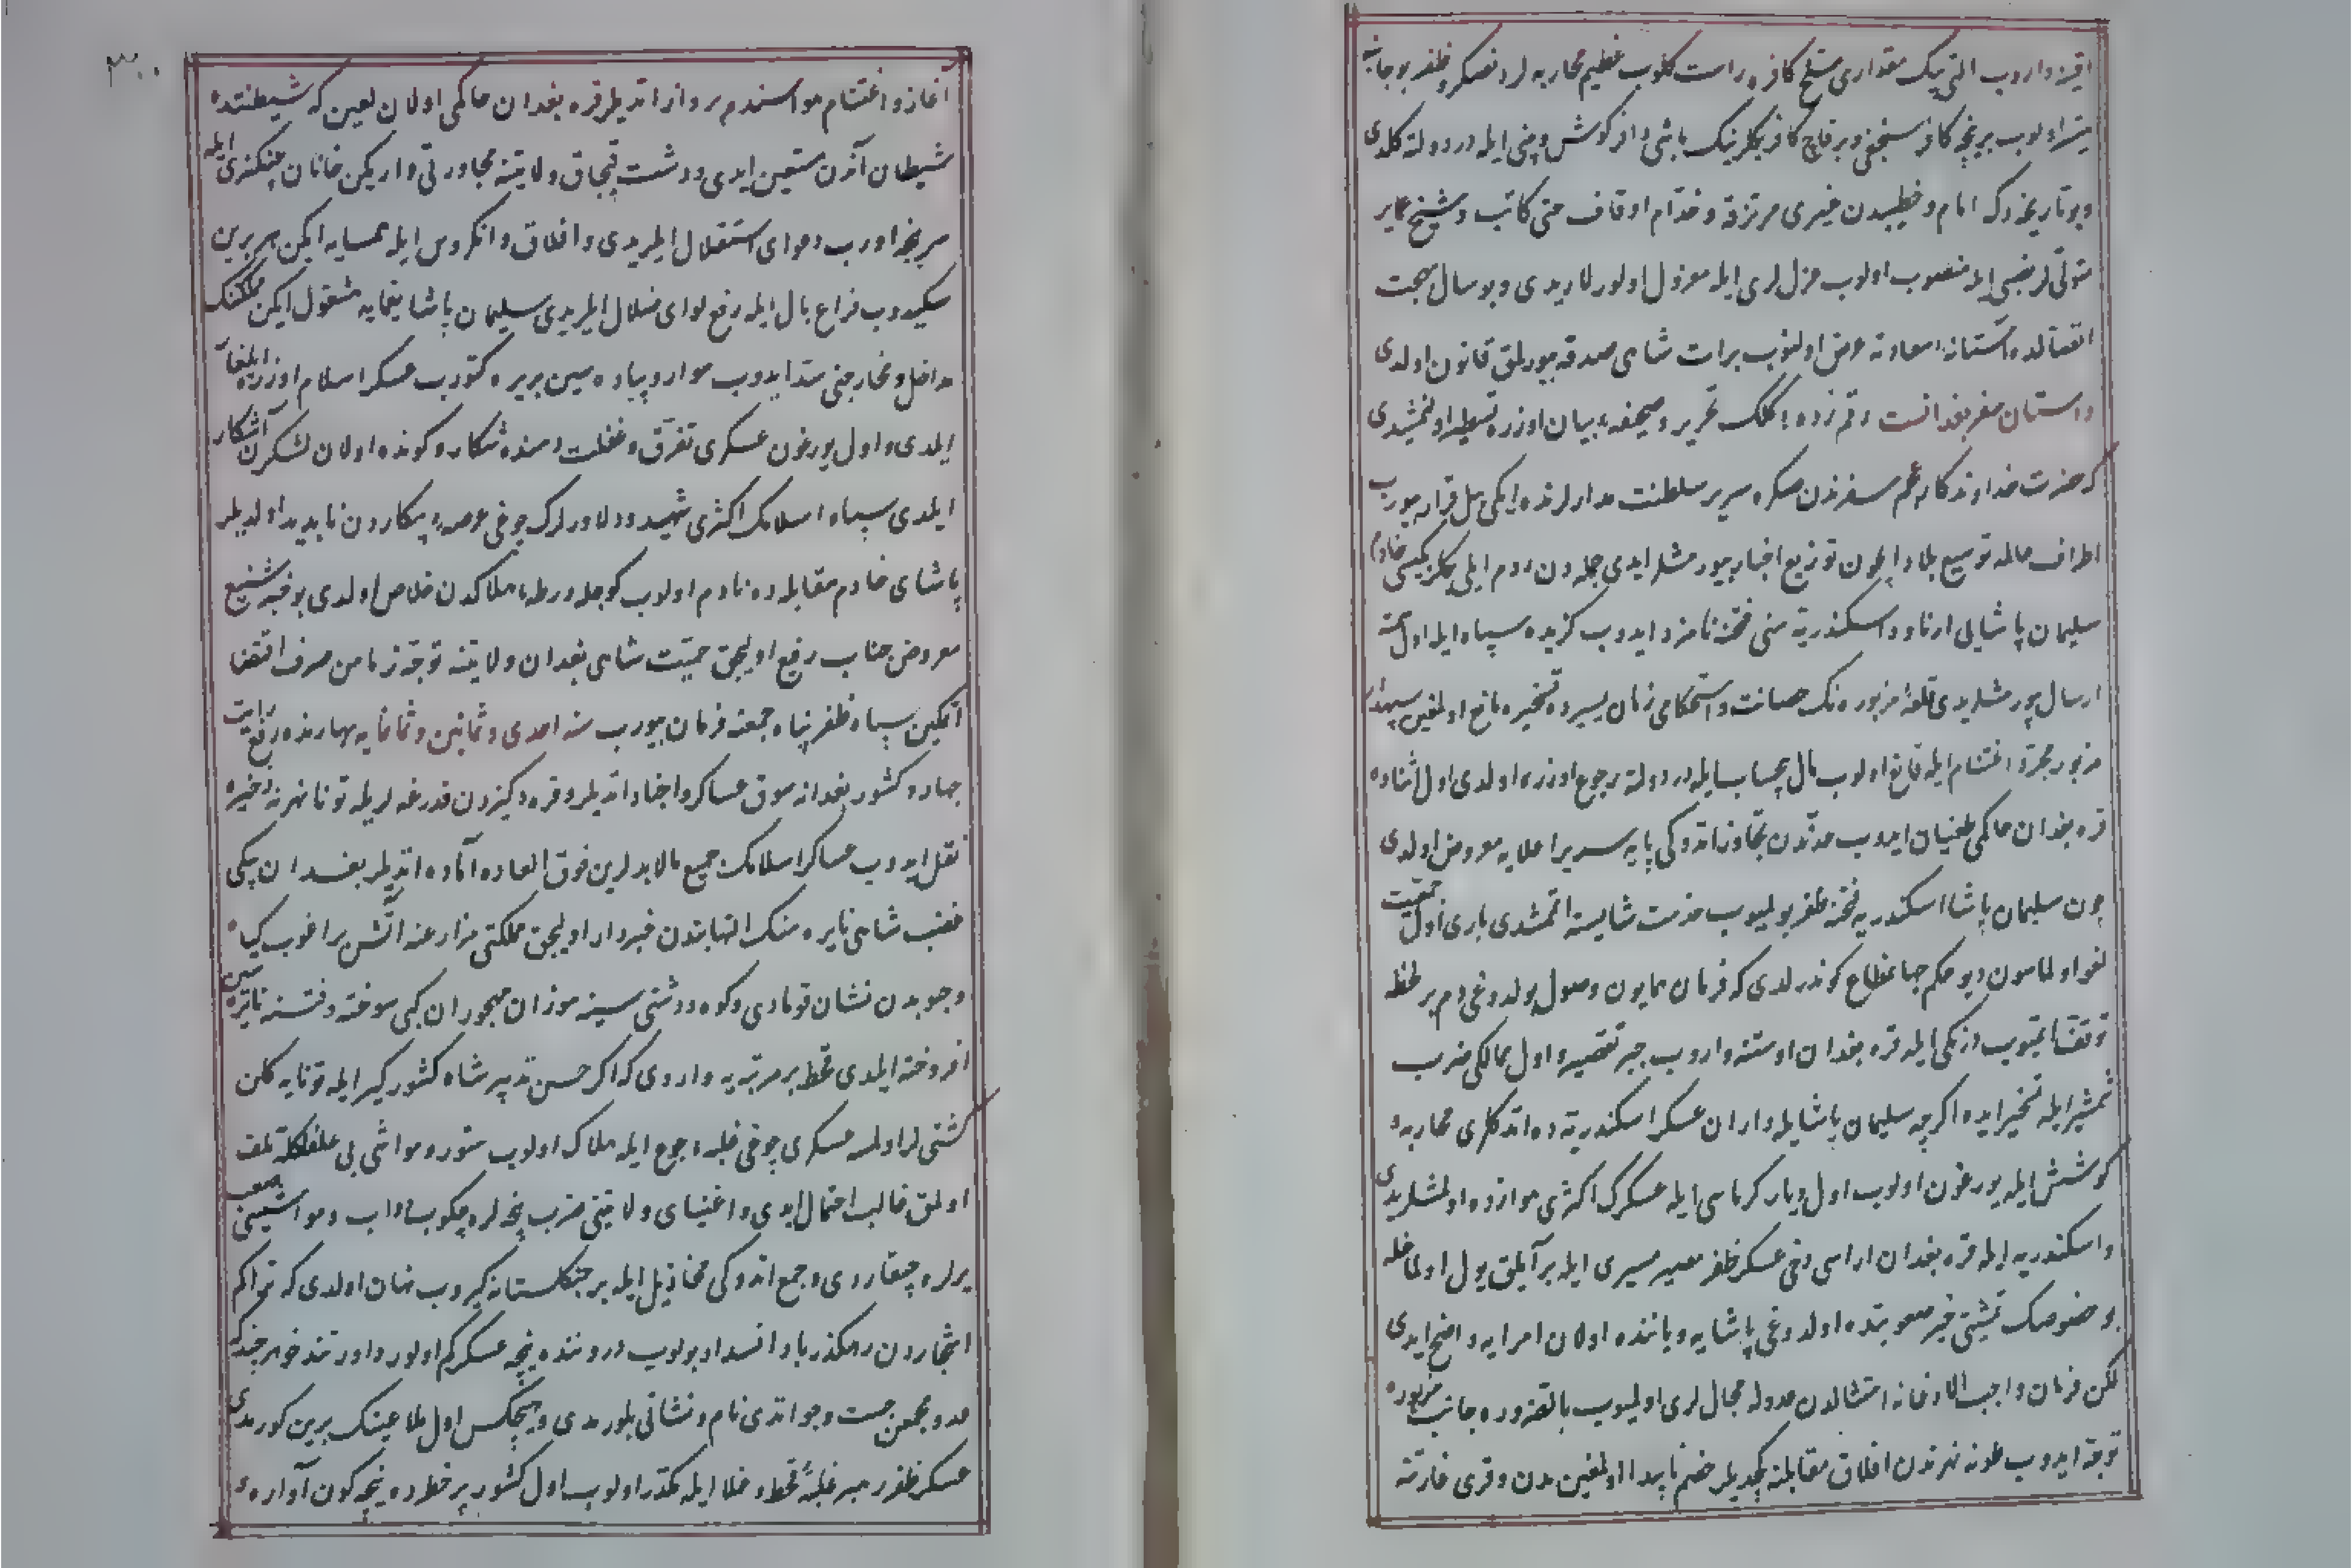 اقین واروب التی بیك مقداری مسلح كافره راست كلوب عظیم محاربه لردنصكره ظفر بو جانبه
میسر اولوب بر نیچه كافر سنجغی و بر قاچ كافر بكلرینك باشی وافر كوش و بینی ایله در دولته كلدی
و بو تاریخده كه امام و خطیبدن غیری مرتزقه و خدّام اوقاف حتی كاتب و شیخ عمایر
متولّی لر نصبی ایله منصوب اولوب عزل لری ایله معزول اولورلار ایدی و بو سال بهجت
اتصالده آستانهٔ سعادته عرض اولنوب برات شاهی صدقه بیورلمق قانون اولدی
داستان سفر بغدانست رقم زدهٔ كلك تحریر و صحیفهٔ بیان اوزره تسطیر اولنمشیدی
كه حضرت خداوندكار عجم سفرندن صكره سریر سلطنت مدارلرنده ایكی ییل قرار بیوروب
اطراف عالمه توسیع بلاد ایچون توزیع اجناد بیورمشلر ایدی جمله دن روم ایلی بكلربكیسی خادم
سلیمان پاشایی ارناود اسكندریه سنی فتحنه نامزد ایدوب كزیده سپاه ایله اول سمته
ارسال بیورمشلریدی قلعهٔ مزبوره نك حصانت و استحكامی زمان یسیرده تسخیره مانع اولمغین سپهدار
مزبور مجرّد اغتنام ایله قانع اولوب مال بیحساب ایله در دولته رجوع اوزره اولدی اول اثناده
قره بغدان حاكمی طغیان ایدوب حدّندن تجاوز اتدوكی پایه سریر اعلایه معروض اولدی
چون سلیمان پاشا اسكندریه فتحنه ظفر بولمیوب خدمت شایسته اتممشدی باری اول جمعیت
لغو اولماسون دیو حكم جهانمطاع كوندرلدی كه فرمان همایون وصول بولدوغی دم بر لحظه
توقف ایتمیوب انكی ایله قره بغدان اوستنه واروب جبر تقصیر و اول ممالكی ضرب
شمشیر ایله تسخیر ایده اكرچه سلیمان پاشایله واران عسكر اسكندریه ده اتدكلری محاربه و
كوشش ایله یورغون اولوب اول دیار كرماسی ایله عسكرك اكثری موازده اولمشلریدی
و اسكندریه ایله قره بغدان اراسی دخی عسكر ظفر معبر مسیری ایله بر آیلق یول اولماغله
بو خصوصك تمشیتی خیر صعوبتده اولدوغی پاشایه و یاننده اولان امرایه واضح ایدی
لكن فرمان واجب الاذعانه امتثالدن عدوله مجال لری اولمیوب بالضروره جانب مزبوره
توجّه ایدوب طونه نهرندن افلاق مقابلنه كچدیلر خصم ناپیدا اولمغین مدن و قری غارتنه
٣٠٠
آغاز و اغتنام هواسندم پرواز اتدیلر قره بغدان حاكمی اولان لعین كه شیطنتده
شیطان آندن مستعین ایدی و دشت قپچاق ولایتنه مجاورتی واریكن خانان چنكیزی ایله
سرپنجه اوروب دعوای استقلال ایلریدی و افلاق و انكروس ایله همسایه ایكن هر برین
سكیدوب فراغ بال ایله رفع لوای ضلال ایلریدی سلیمان پاشا یغمایه مشغول ایكن مملكتك
مداخل و مخارجنی سدّ ایدوب سوار و پیاده سین بریره كتوروب عسكر اسلام اوزره ایلغار
ایلدی و اول یورغون عسكری تفرّق و غفلت دمنده شكار و كونده اولان لشكرن آشكار
ایلدی سپاه اسلامك اكثری شهید و دلاورلرك چوغی عرصهٔ پیكاردن ناپدید اولدیلر
پاشای خادم مقابله ده نادم اولوب كوجله ورطهٔ هلاكدن خلاص اولدی بو خبر شنیع
معروض جناب رفیع اولیجق حمیّت شاهی بغدان ولایتنه توجّه زمامن صرف اقتضا
اتمكین سپاه ظفرپناه جمعنه فرمان بیوروب سنه احدی و ثمانین و ثمانمایه بهارنده رفع رایت
جهاد و كشور بغدانه سوق عساكر و اجناد اتدیلر و قره دكیزدن قدرغه لر یله تونا نهرنه ذخیره
نقل ایدوب عساكر اسلامك جمیع مالابدلرین فوق العاده آماده اتدیلر بغدان بیكی
غضب شاهی نایره سنك التهابندن خبردار اولیجق مملكتی مزارعنه آتش براغوب كیاه
و حبوبدن نشان قومادی و كوه و دشتی سینه سوزان مهجوران كبی سوخته و فتنه نایره سین
افروخته ایلدی قحط بر مرتبه یه واردی كه اكر حسن تدبیر شاه كشوركیر ایله تونایه كلن
كشتی لر اولمسه عسكری چوغی غلبهٔ جوع ایله هلاك اولوب ستور و مواشی بی علفلكله تلف
اولمق غالب احتمال ایدی و اغنیای ولایتنی ضرب پنجه لره چكوب دواب و مواشیسنی صعب
یرلره چیقاردی و جمع اتدوكی مخاذیل ایله بر جنكلستانه كیروب نهان اولدی كه تراكم
اشجاردن رهكذر باد انسداد بولوب دروننده نیچه عسكر كم اولور داور تندخو هر چند كه
عدوّ بی جست و جو اتدی نام و نشانی بلورمدی و هیچكس اول ملاعینك یرین كورمدی
عسكر ظفر رهبر غلبهٔ قحط و غلا ایله مكدّر اولوب اول كشور پر خطرده نیچه كون آواره و